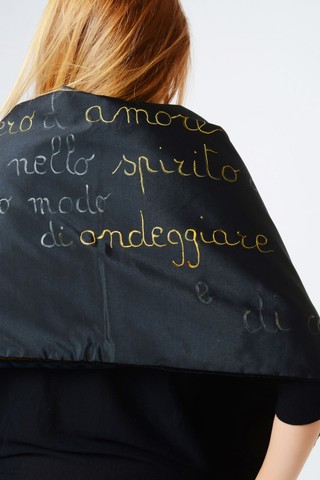 ero d'amore
nello spirito
o modo
di ondeggiare
e
di